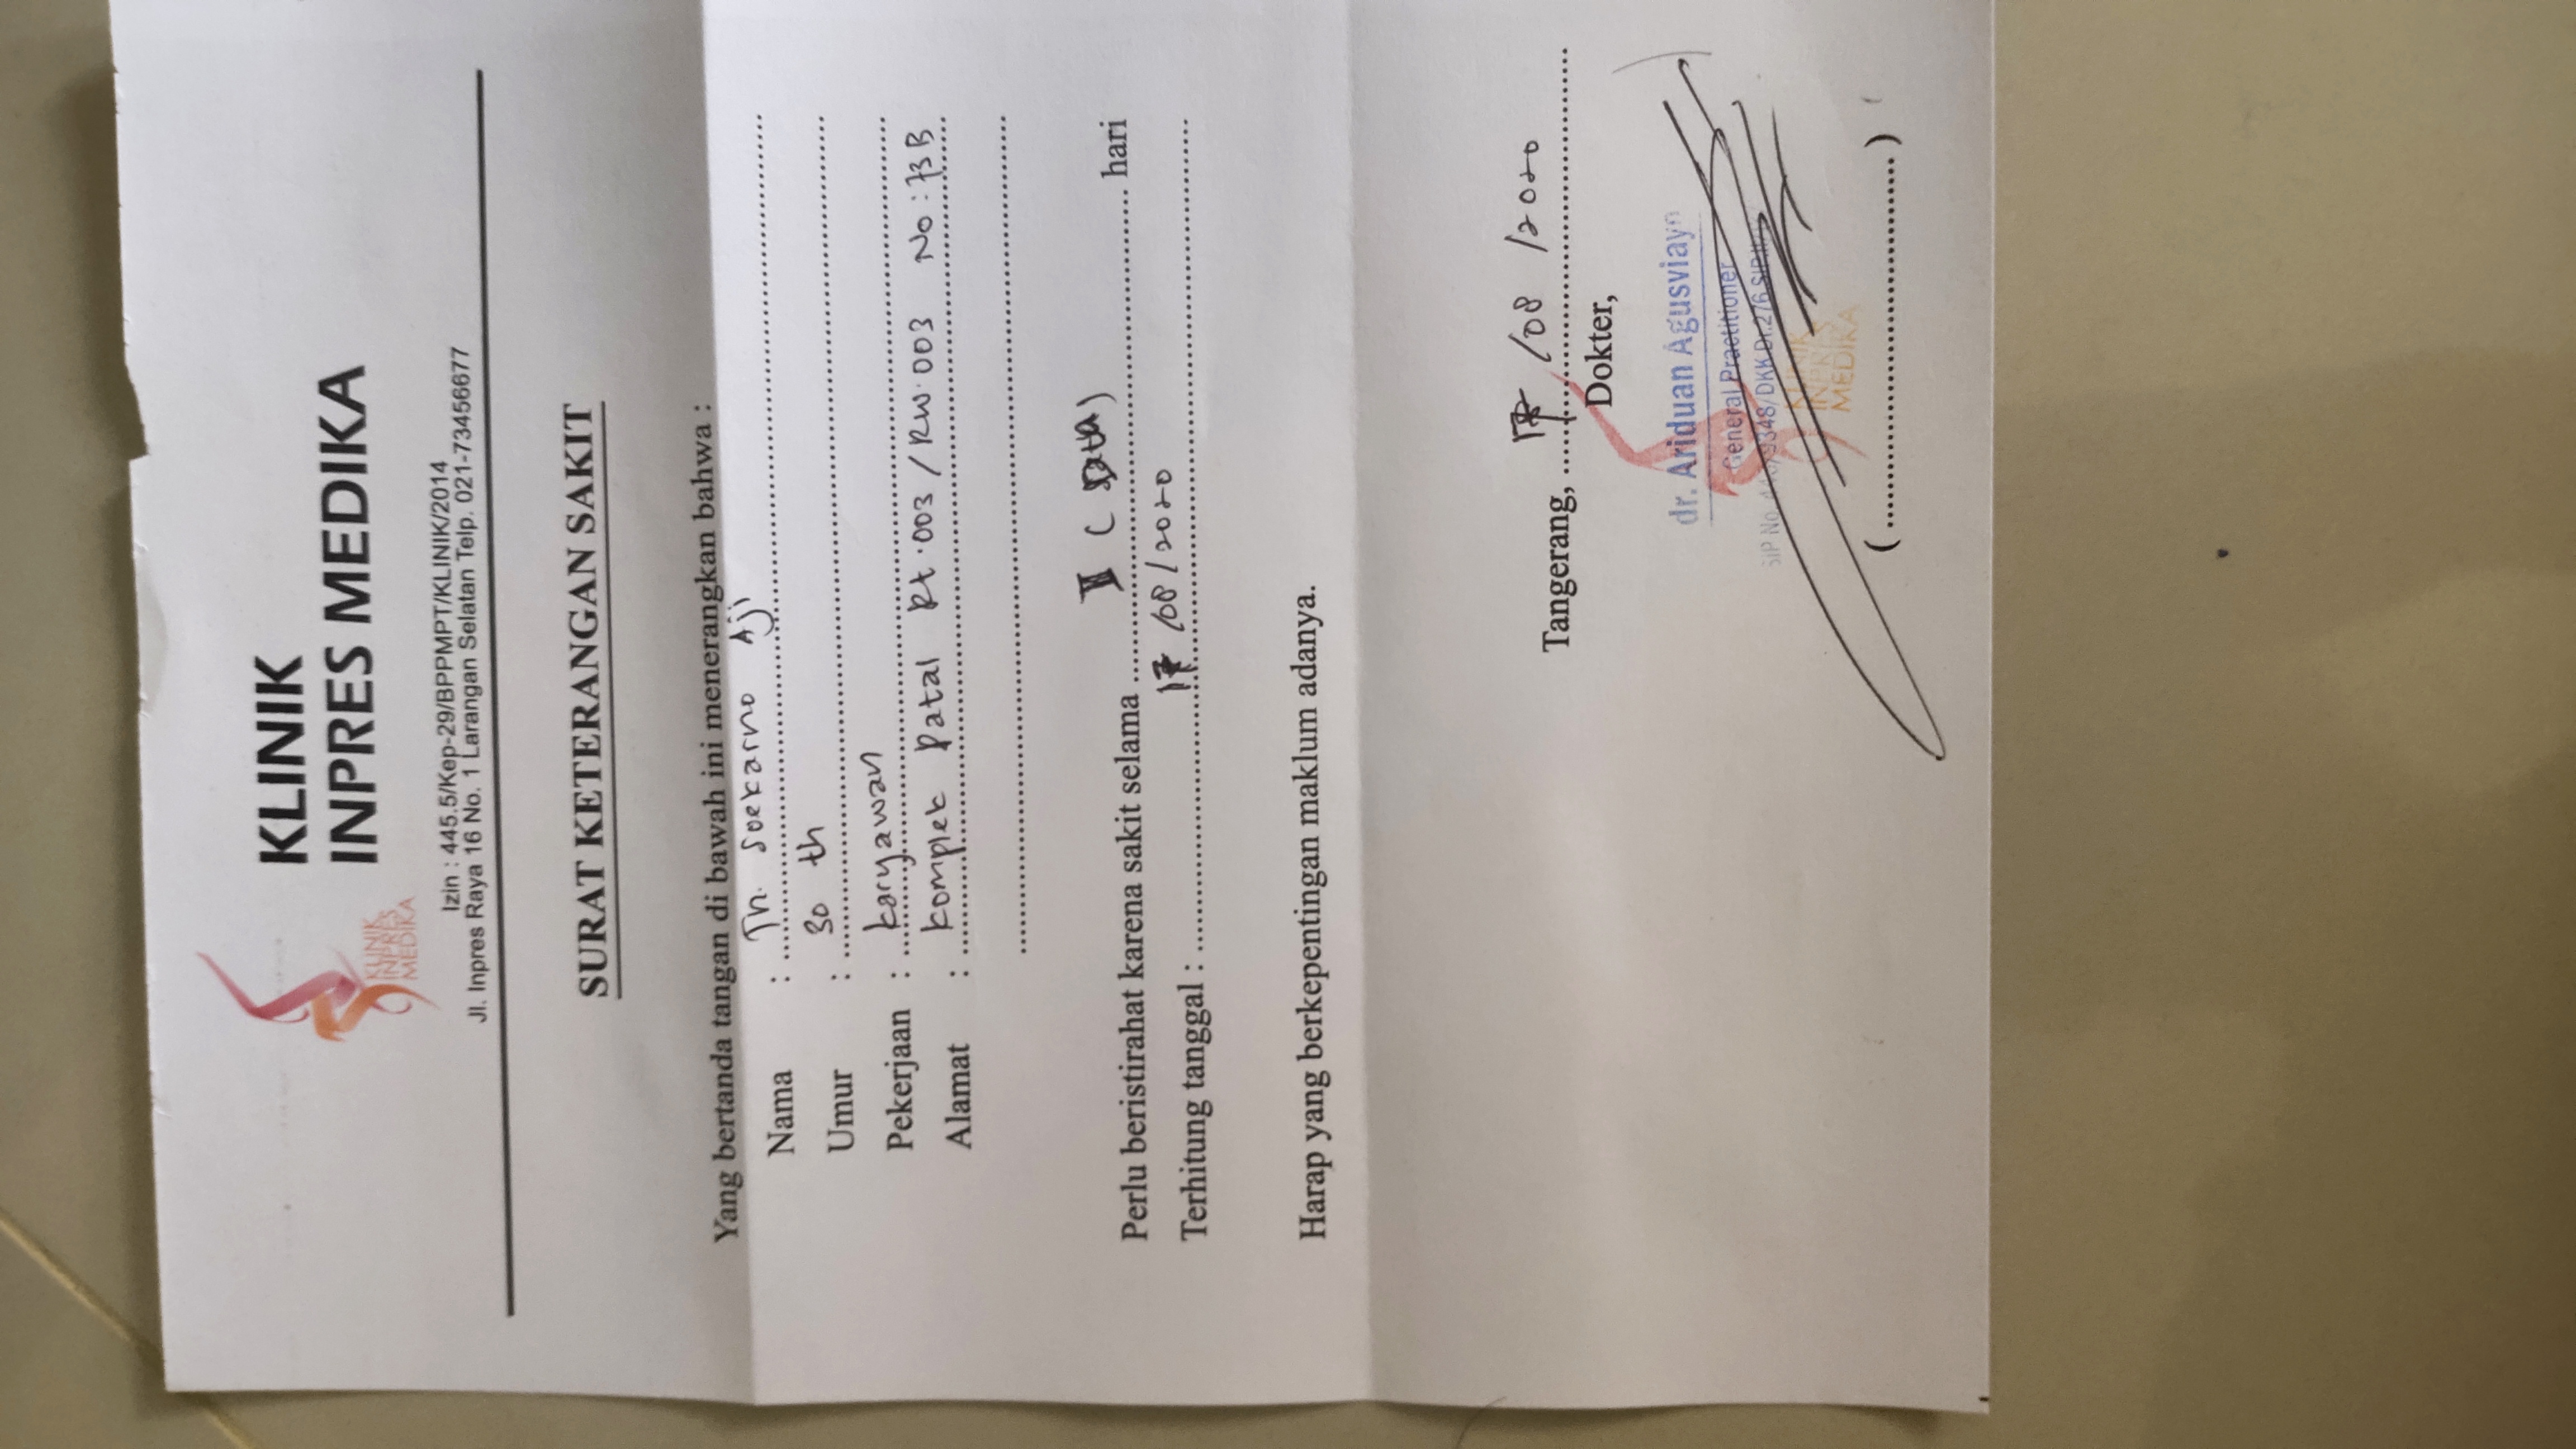 KLINIK
INPRES MEDIKA
KLINIK
INPRES
MEDIKA
Izin : 445.5/Kep-29/BPPMPT/KLINIK/2014
Jl. Inpres Raya 16 No. 1 Larangan Selatan Telp. 021-73456677
SURAT KETERANGAN SAKIT
Yang bertanda tangan di bawah ini menerangkan bahwa :
Nama : Tn. Soekarno Aji
Umur : 30 th
Pekerjaan : karyawan
Alamat : komplek Patal Rt.003 / RW.003 No : 73 B
Perlu beristirahat karena sakit selama hari
Terhitung tanggal : /08/2020
Harap yang berkepentingan maklum adanya.
Tangerang, /08 /2020
Dokter,
dr. Ariduan
General Practitioner
SIP No.
KLINIK
INPRES
MEDIKA